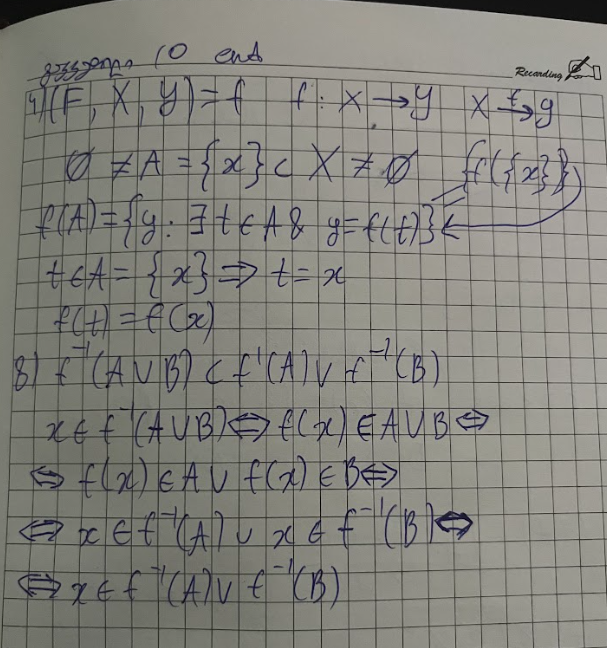 10 end
Recording
4) (F, X, Y) = f f : X → y X →f y
∅ ≠ A = {x} ⊂ X ≠ ∅ {f({x})}
f(A) = {y : ∃ t ∈ A & y = f(t)}
t ∈ A = {x} ⇒ t = x
f(t) = f(x)
8) f⁻¹(A ∪ B) ⊂ f¹(A) ∪ f⁻¹(B)
x ∈ f⁻¹(A ∪ B) ⇔ f(x) ∈ A ∪ B ⇔
⇔ f(x) ∈ A ∨ f(x) ∈ B ⇔
⇔ x ∈ f⁻¹(A) ∪ x ∈ f⁻¹(B) ⇔
⇔ x ∈ f⁻¹(A) ∪ f⁻¹(B)